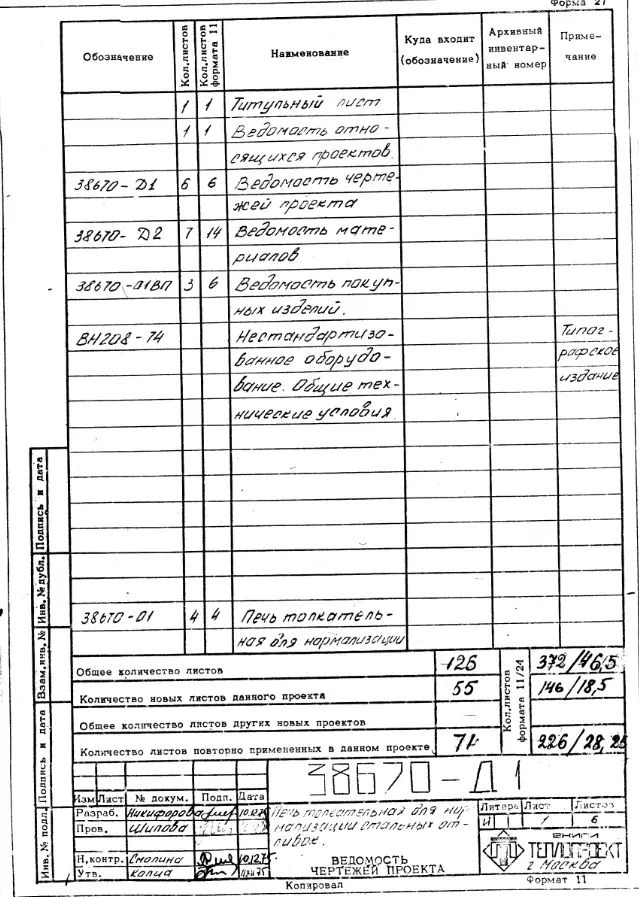 Форма 27
Обозначение Кол.листов Кол.листов формата 11 Наименование Куда входит (обозначение) Архивный инвентарный номер Примечание
1 1 Титульный лист
1 1 Ведомость отно-
сящихся проектов.
38670-Д1 6 6 Ведомость черте-
жей проекта
38670-Д2 7 14 Ведомость мате-
риалов
38670-01ВП 3 6 Ведомость покуп-
ных изделий.
ВН208-74 Нестандартизо- Типог-
ванное оборудо- рафское
вание. Общие тех- издание
нические условия
38670-01 4 4 Печь толкатель-
ная для нормализации
Общее количество листов 126 372/46,5
Количество новых листов данного проекта 55 146/18,5
Общее количество листов других новых проектов
Количество листов повторно примененных в данном проекте 71 226/28,25
Кол.листов формата 11/24
Инв. № подл. Подпись и дата Взам.инв. № Инв. № дубл. Подпись и дата
38670-Д1
Изм Лист № докум. Подп. Дата
Разраб. Никифорова 10.12.75
Пров. Шилова
Н.контр. Смолина 10.12.75
Утв.
Печь толкательная для нор-
мализации стальных от-
ливок.
ВЕДОМОСТЬ
ЧЕРТЕЖЕЙ ПРОЕКТА
Литера Лист Листов
И 1 6
ВНИПИ
ТЕПЛОПРОЕКТ
г Москва
Копировал Формат 11